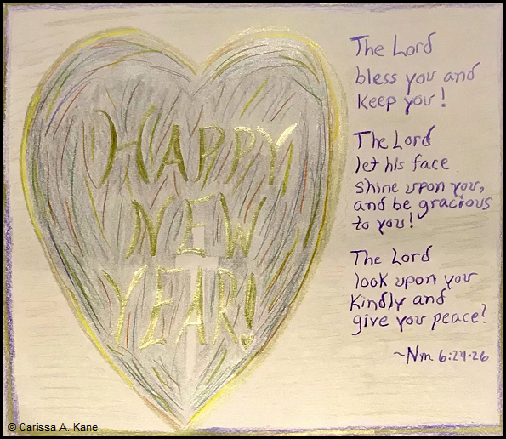 HAPPY
NEW
YEAR!
The Lord
bless you and
keep you!
The Lord
let his face
shine upon you,
and be gracious
to you!
The Lord
look upon you
kindly and
give you peace!
~Nm 6:24-26
© Carissa A. Kane